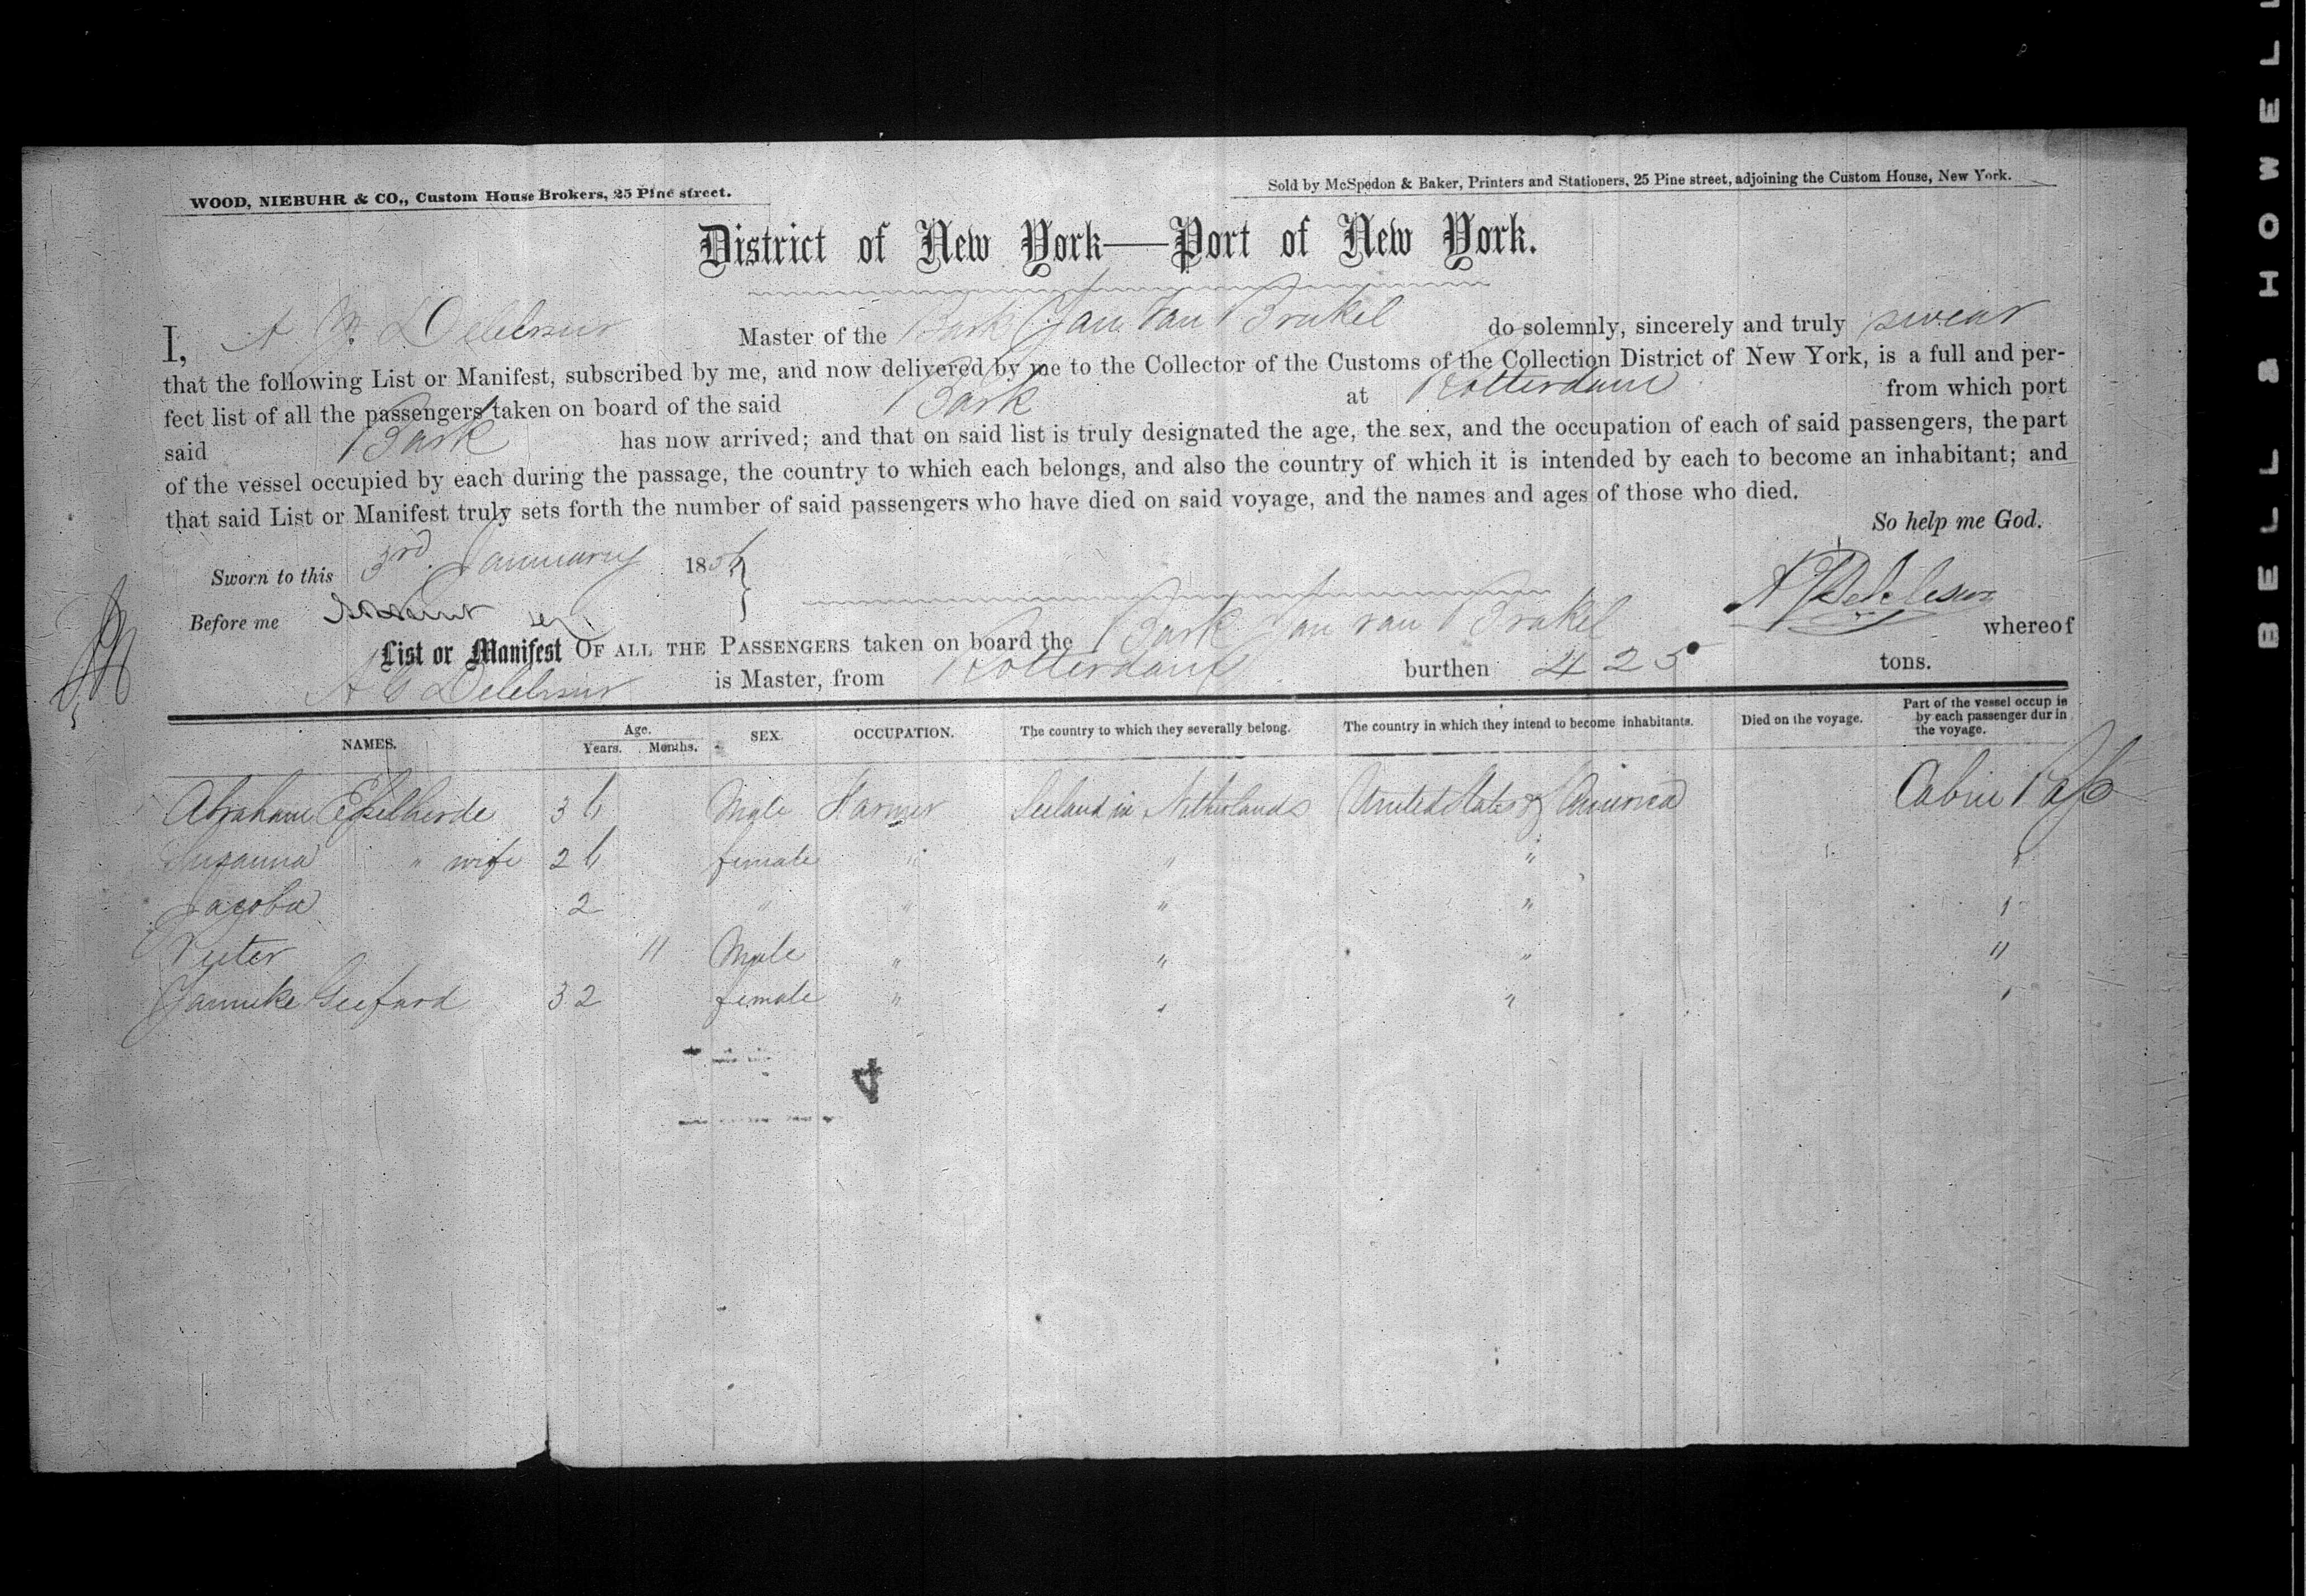 WOOD, NIEBUHR & CO., Custom House Brokers, 25 Pine street.
Sold by McSpedon & Baker, Printers and Stationers, 25 Pine street, adjoining the Custom House, New York.
District of New York—Port of New York.
I, A Master of the Bark Jan van Brakel do solemnly, sincerely and truly swear
that the following List or Manifest, subscribed by me, and now delivered by me to the Collector of the Customs of the Collection District of New York, is a full and per-
fect list of all the passengers taken on board of the said Bark at Rotterdam from which port
said Bark has now arrived; and that on said list is truly designated the age, the sex, and the occupation of each of said passengers, the part
of the vessel occupied by each during the passage, the country to which each belongs, and also the country of which it is intended by each to become an inhabitant; and
that said List or Manifest truly sets forth the number of said passengers who have died on said voyage, and the names and ages of those who died.
So help me God.
Sworn to this 3rd January 1856
Before me
List or Manifest OF ALL THE PASSENGERS taken on board the Bark Jan van Brakel whereof
is Master, from Rotterdam burthen 425 tons.
NAMES. Age. Years. Months. SEX. OCCUPATION. The country to which they severally belong. The country in which they intend to become inhabitants. Died on the voyage. Part of the vessel occup in by each passenger dur in the voyage.
Abraham 36 Male Farmer Seeland in Netherlands United States of America Cabin Pass
Susanna " wife 26 female " " " "
Jacoba 2 " " " " "
Pieter 11 Male " " " "
Janneke 32 female " " " "
4
BELL & HOWELL